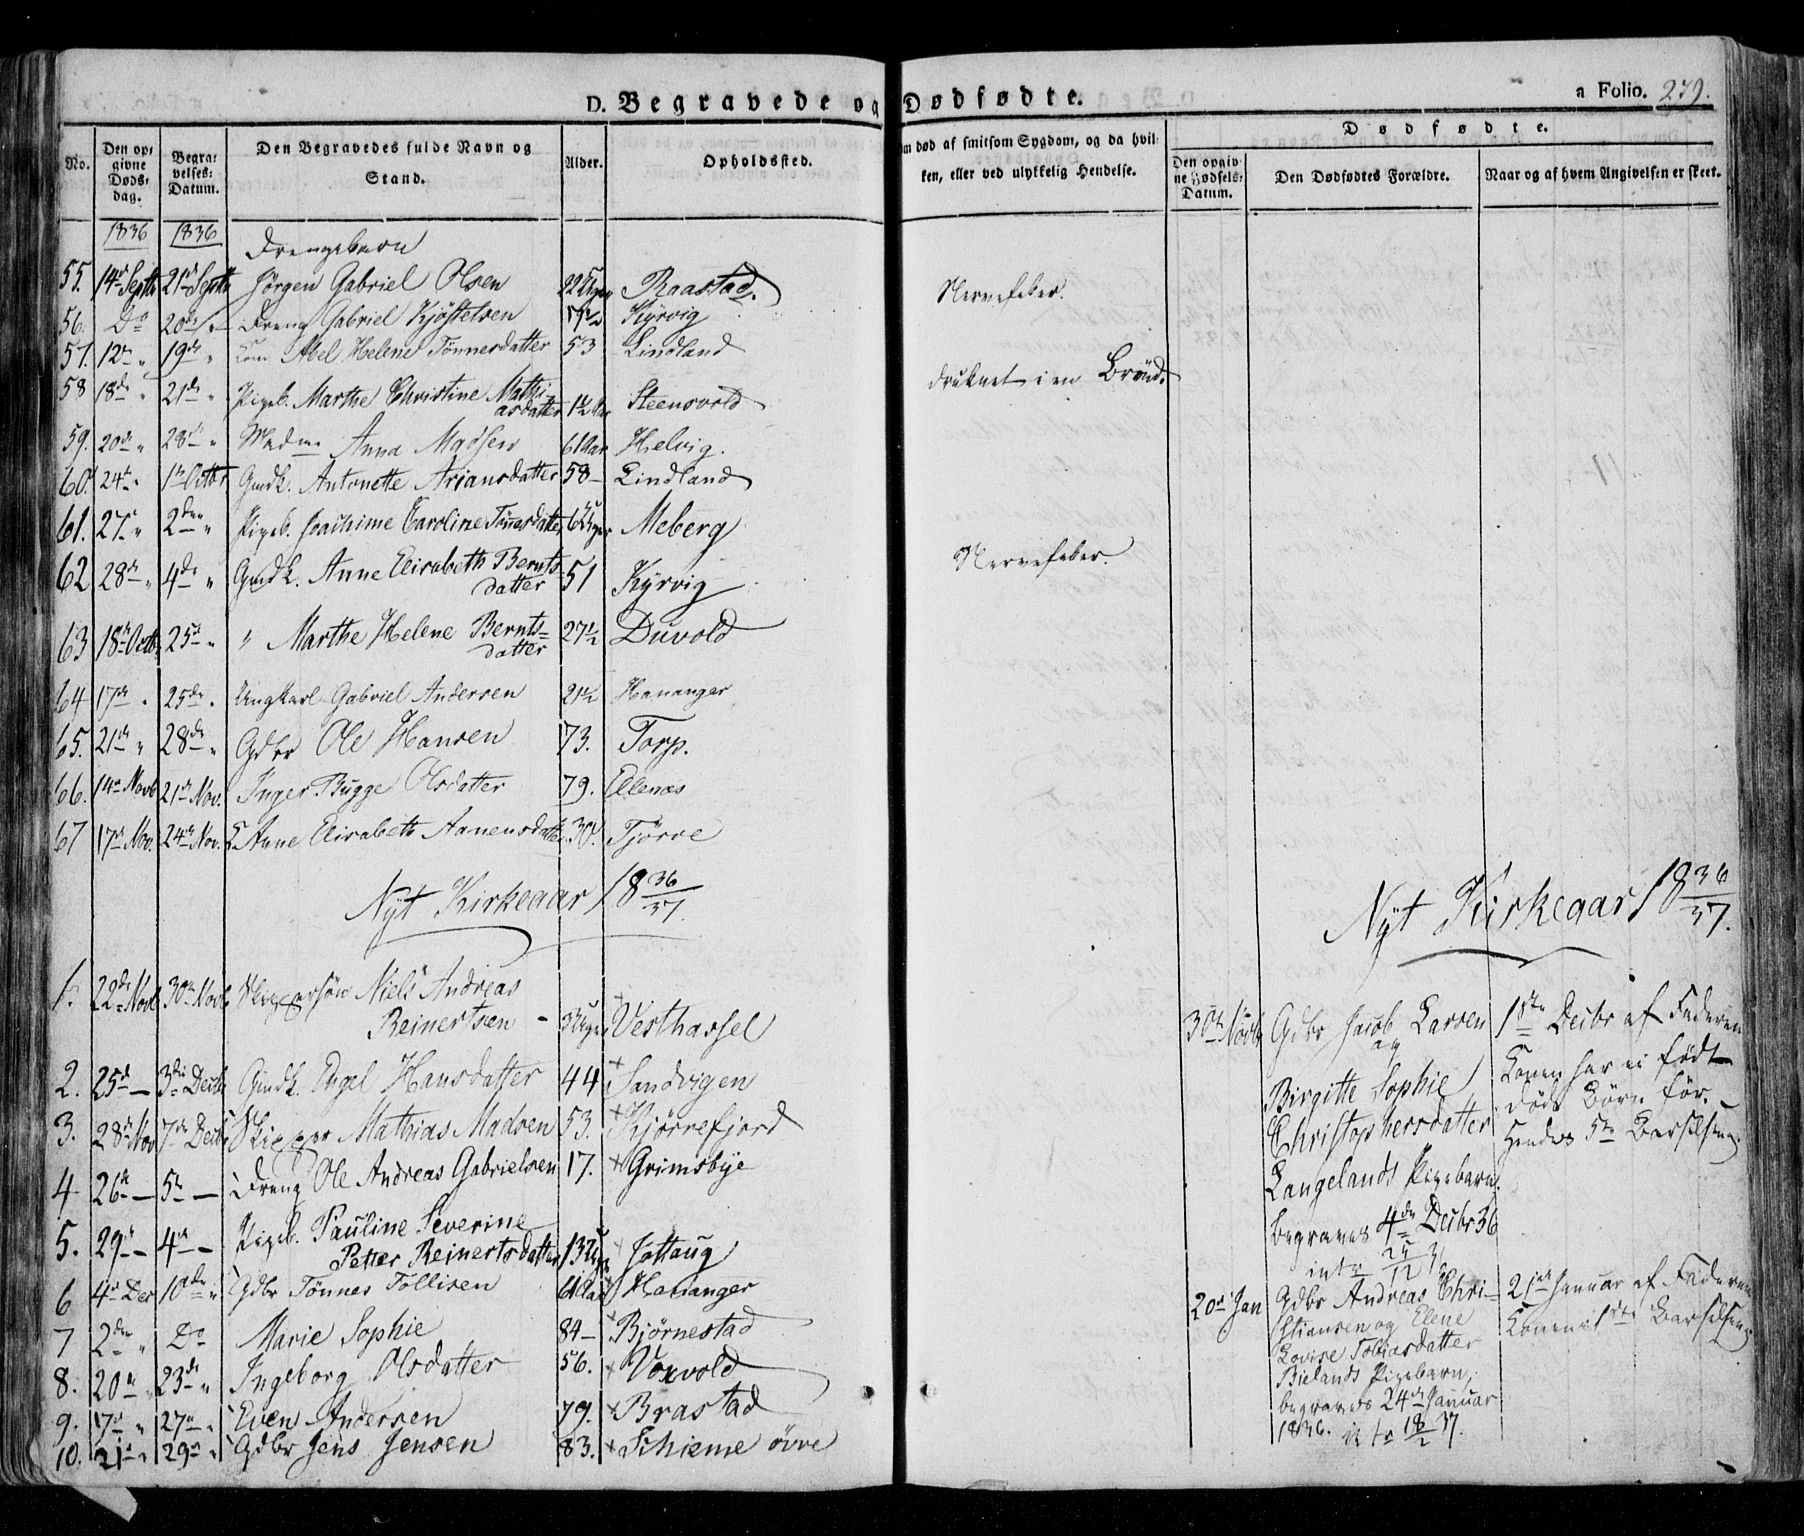 D. Begravede og Dødfødte.
a Folio. 279.
No.
Den opgivne Dødsdag.
Begravelses-Datum.
Den Begravedes fulde Navn og Stand.
Alder.
Opholdssted.
Om død af smitsom Sygdom, og da hvilken, eller ved ulykkelig Hendelse.
Dødfødte.
Den opgivne Fødsels-Datum.
Den Dødfødtes Forældre.
Naar og af hvem Angivelsen er skeet.
1836 1836
Drengebarn
55. 14de Septbr 21de Septbr Jørgen Gabriel Olsen 22 Uger Raastad. Nervefeber.
56. Do 20de Dreng Gabriel Kjøstelsen Kyrvig
57. 12te " 19de " Kone Abel Helene Tønnesdatter 53 Lindland
58 18de " 21de " Pigeb. Marthe Christine Mathiasdatter 1½ Aar Steensvold druknet i en Brønd.
59. 20de " 28de " Madme Anna Madsen 61 Aar Helvig.
60. 24de " 1te Octbr Gmdk. Antonette Ariansdatter 58 – Lindland
61. 27de " 2den " Pigeb. Joachime Caroline Tønnesdatter 6 Uger Meberg
62 28de " 4de " Gmdk. Anne Elisabeth Berntsdatter 51 Kyrvig Nervefeber.
63 18de Octbr 25de " " Marthe Helene Berntsdatter 27½ Duvold
64 17de " 25de " Ungkarl Gabriel Andersen 21½ Hananger
65. 21de " 28de " Gdbr Ole Hansen 73. Torp.
66. 14de Novb 21de Nov. Inger Bugge Olsdatter 79. Ellenæs
67 17de Nov. 24de Nov. Anne Elisabeth Aanensdatter 30. Tjørve
Nyt Kirkeaar 1836/37.
Nyt Kirkeaar 1836/37.
1. 22de Novb 30te Novb. Skippersøn Niels Andreas
Reinertsen – 3 Uger Vesthassel
2. 25de – 3die Decbr Gmdk. Engel Hansdatter 44 Sandvigen
3. 28de Nov 7de Decbr Skipper Mathias Madsen 53. Kjørrefjord
4 26de – 5te – Dreng Ole Andreas Gabrielsen 17. Grimsbye
5. 29de – 4de – Pigeb. Pauline Severine
Petter Reinertsdatter 13 Uger Jøllaug
6 4de Dec 10de " Gdbr Tønnes Tollisen 61 Aar Hananger
7 2den " Do Marie Sophie 84 – Bjørnestad
8. 20de " 23de " Ingeborg Olsdatter 56. Voxvold
9. 17de " 27de " Even Andersen 79. Brastad
10. 21de " 29de " Gdbr Jens Jensen 83. Skieme øvre
30te Novb Gdbr Jacob Larsen
og
Birgitte Sophie
Christophersdatter
Langelands Pigebarn.
begraves 4de Decbr 36
1ste Decbr af Faderen
Konen har ei født
døde Børn før. –
Hendes 5te Barselseng.
20de Jan Gdbr Andreas Christiansen og Elene
Lovise Tobiasdatter
Bielands Pigebarn,
begraves 24de Januar
1836.
21de Januar af Faderen
Konens 1ste Barselseng